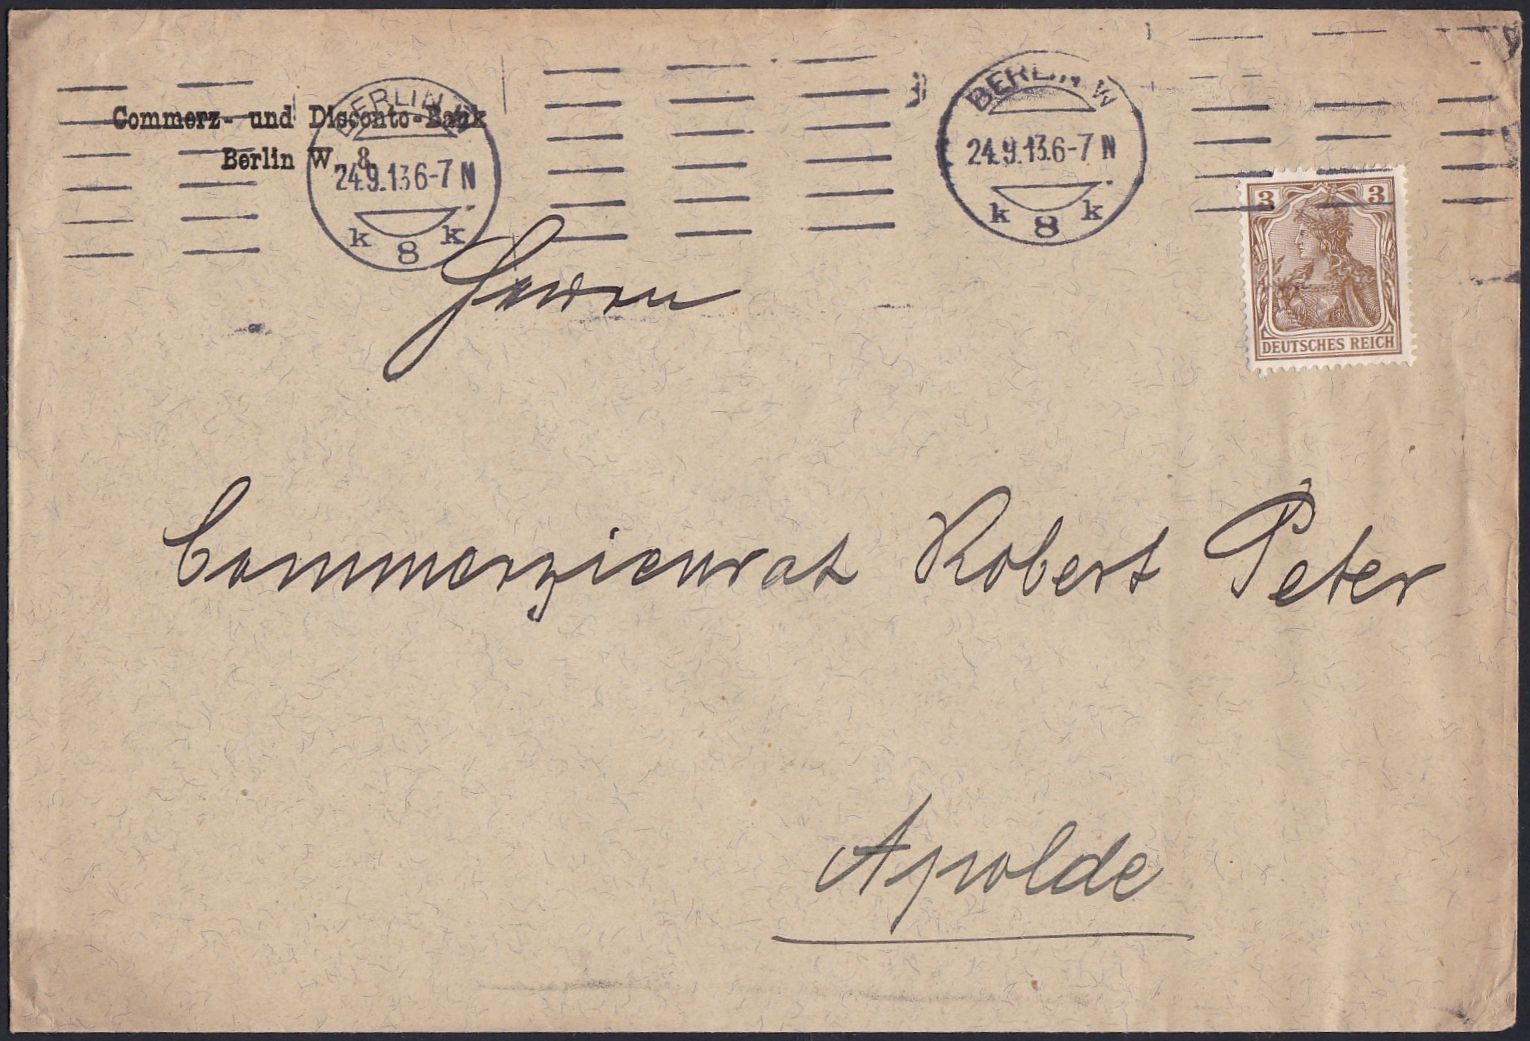 Commerz- und Disconto-Bank
Berlin W. 8.
BERLIN W
24.9.13.6-7 N
k 8 k
BERLIN W
24.9.13.6-7 N
k 8 k
3 3
DEUTSCHES REICH
Herrn
Commerzienrat Robert Peter
Apolde